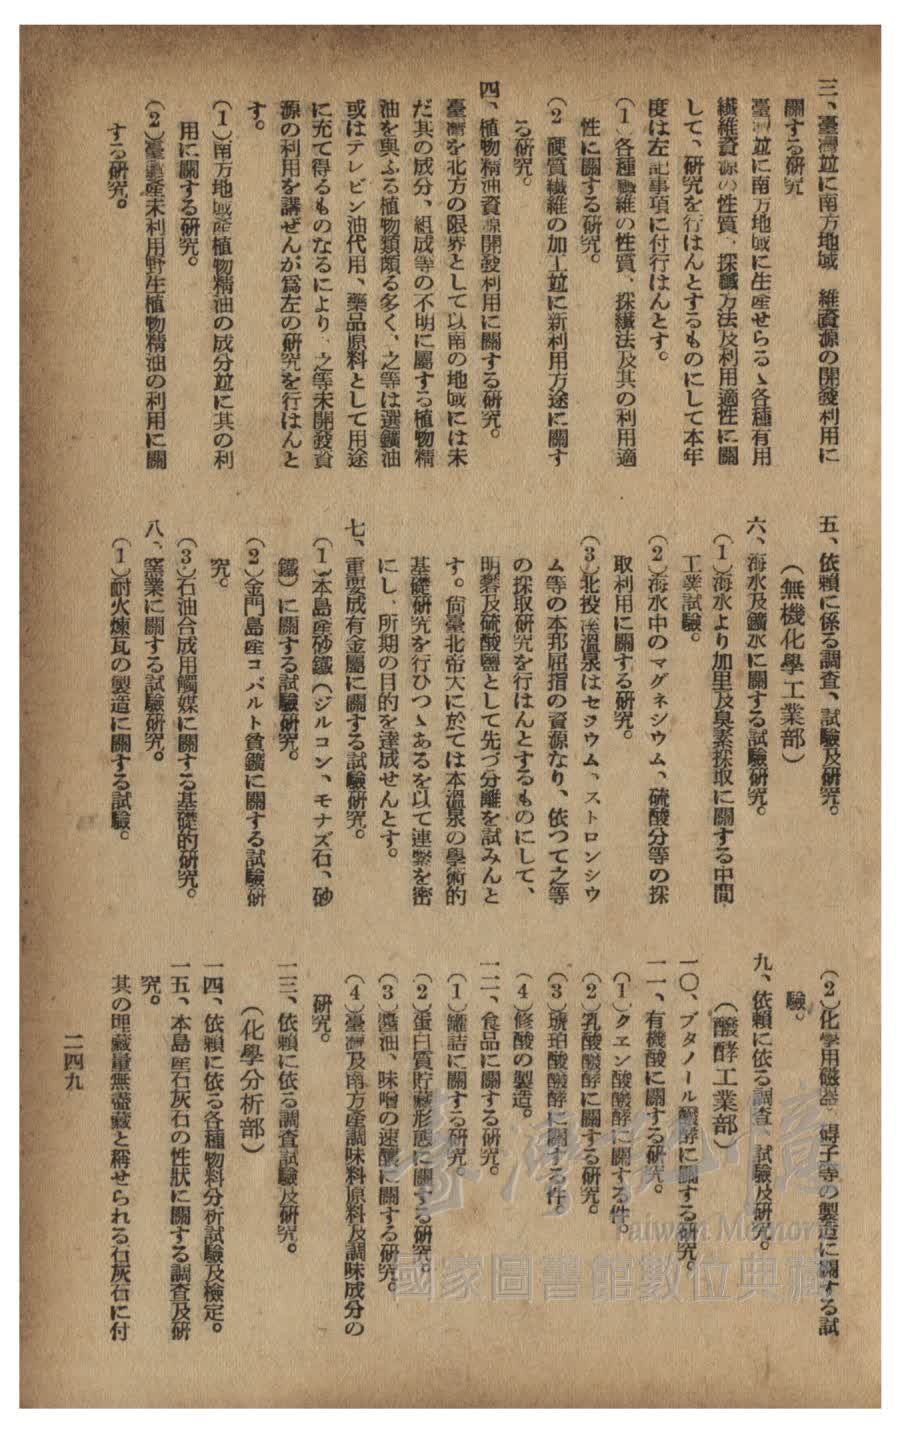 三、臺灣竝に南方地域　維資源の開發利用に
關する研究
臺灣竝に南方地域に生産せらるゝ各種有用
纖維資源の性質、採纖方法及利用適性に關
して、研究を行はんとするものにして本年
度は左記事項に付行はんとす。
(1)各種纖維の性質、採纖法及其の利用適
性に關する研究。
(2 硬質纖維の加工竝に新利用方途に關す
る研究。
四、植物精油資源開發利用に關する研究。
臺灣を北方の限界として以南の地域には未
だ其の成分、組成等の不明に屬する植物精
油を與ふる植物類頗る多く、之等は選鑛油
或はテレビン油代用、藥品原料として用途
に充て得るものなるにより、之等未開發資
源の利用を講ぜんが爲左の研究を行はんと
す。
(1)南方地域産植物精油の成分竝に其の利
用に關する研究。
(2)臺灣産未利用野生植物精油の利用に關
する研究。
五、依頼に係る調査、試驗及研究。
(無機化學工業部)
六、海水及鑛水に關する試驗研究。
(1)海水より加里及臭素採取に關する中間
工業試驗。
(2)海水中のマグネシウム、硫酸分等の採
取利用に關する研究。
(3)北投溪溫泉はセシウム、ストロンシウ
ム等の本邦屈指の資源なり、依つて之等
の採取研究を行はんとするものにして、
明礬及硫酸鹽として先づ分離を試みんと
す。尙臺北帝大に於ては本溫泉の學術的
基礎研究を行ひつゝあるを以て連繫を密
にし、所期の目的を達成せんとす。
七、重要成有金屬に關する試驗研究。
(1)本島産砂鐵(ジルコン、モナズ石、砂
鐵)に關する試驗研究。
(2)金門島産コバルト貧鑛に關する試驗研
究。
(3)石油合成用觸媒に關する基礎的研究。
八、窯業に關する試驗研究。
(1)耐火煉瓦の製造に關する試驗。
(2)化學用磁器、碍子等の製造に關する試
驗。
九、依頼に依る調査、試驗及研究。
(醱酵工業部)
一〇、ブタノール醱酵に關する研究。
一一、有機酸に關する研究。
(1)クエン酸醱酵に關する件。
(2)乳酸醱酵に關する研究。
(3)琥珀酸醱酵に關する件。
(4)修酸の製造。
一二、食品に關する研究。
(1)罐詰に關する研究。
(2)蛋白質貯藏形態に關する研究。
(3)醬油、味噌の速釀に關する研究。
(4)臺灣及南方産調味料原料及調味成分の
研究。
一三、依頼に依る調査試驗及研究。
(化學分析部)
一四、依頼に依る各種物料分析試驗及檢定。
一五、本島産石灰石の性狀に關する調査及研
究。
其の埋藏量無盡藏と稱せられる石灰石に付
二四九
臺灣記憶
Taiwan Memory
國家圖書館數位典藏